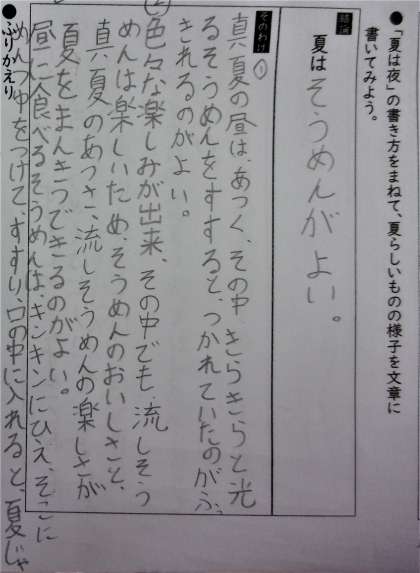 ●「夏は夜」の書き方をまねて、夏らしいものの様子を文章に
書いてみよう。
結論
夏はそうめんがよい。
そのわけ
①
真夏の昼は、あつく、その中、きらきらと光
るそうめんをすすると、つかれていたのがふっ
きれるのがよい。
②
色々な楽しみが出来、その中でも、流しそう
めんは楽しいため、そうめんのおいしさと、
真夏のあつさ、流しそうめんの楽しさが
夏をまんきつできるのがよい。
昼に食べるそうめんは、キンキンにひえ、そこに
めんつゆをつけて、すすり、口の中に入れると、夏じゃ
●ふりかえり